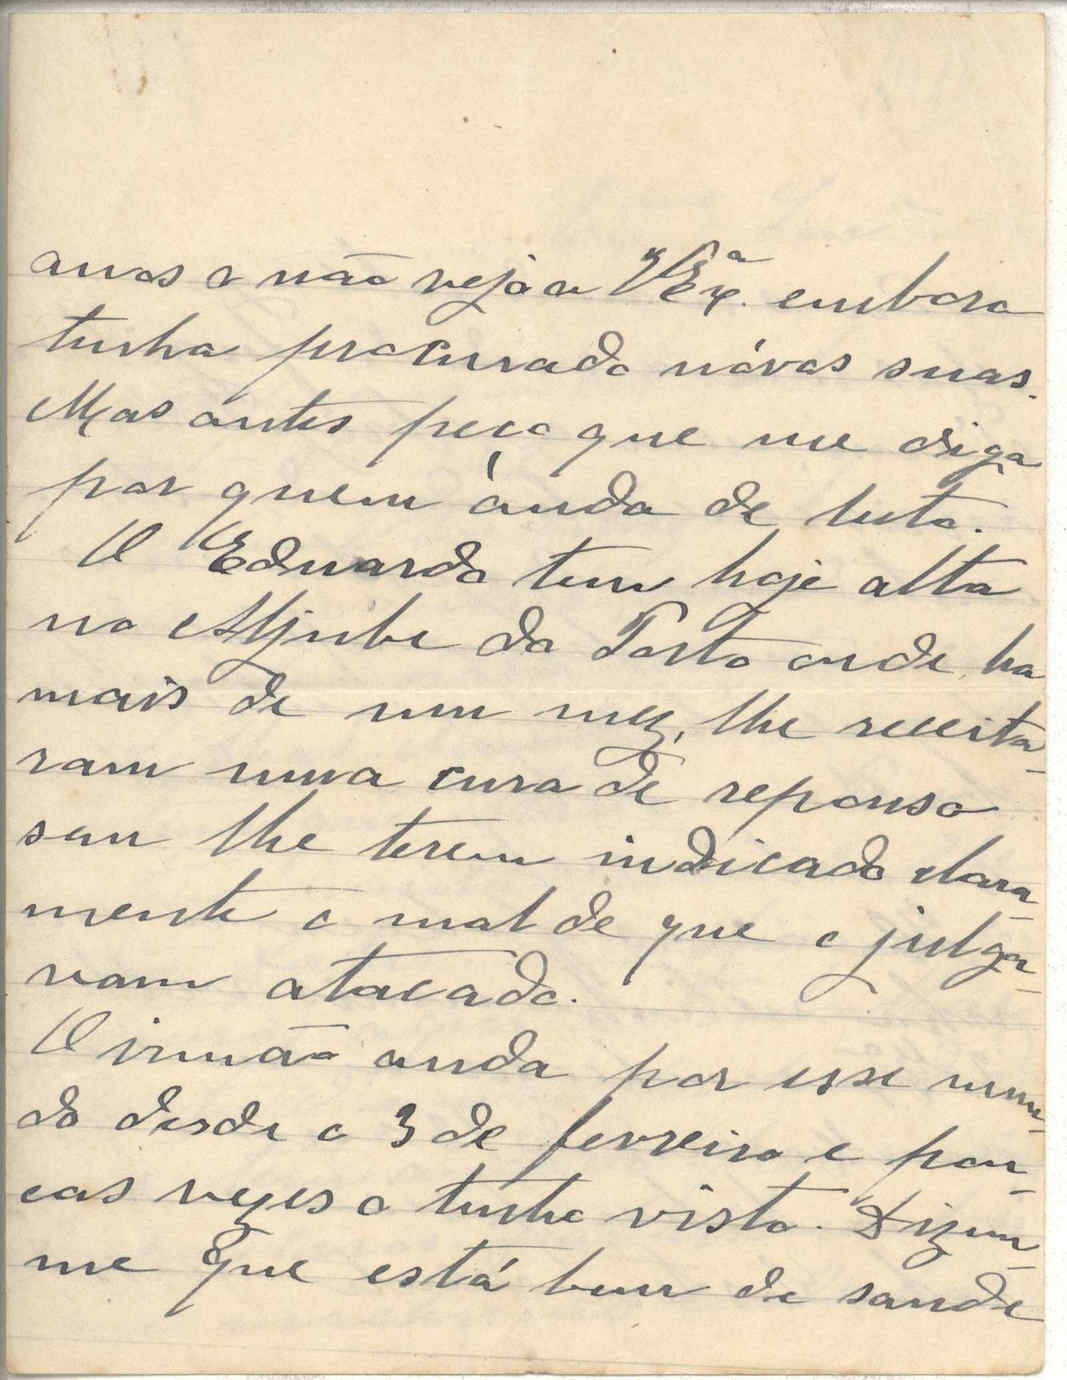 anos o não vejo a VExª. embora
tenha procurado nóvas suas.
Mas antes peço que me diga
por quem ánda de luto.
O Eduardo tem hoje alta
no Aljube do Porto onde, ha
mais de um mez, lhe receita-
ram numa cura de repouso
sem lhe terem indicado clara-
mente o mal de que o julga-
vam atacado.
O irmão anda por esse mun-
do desde o 3 de fevreiro e pou-
cas vezes o tenho visto. Dizem-
me que está bem de saude